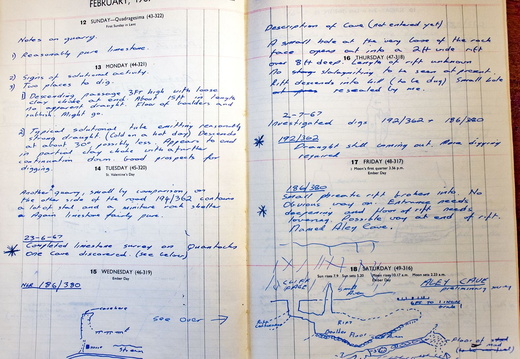 FEBRUARY, 19
12 SUNDAY—Quadragesima (43-322)
First Sunday in Lent
Notes on quarry.
1) Reasonably pure limestone.
13 MONDAY (44-321)
2) Signs of solutional activity.
3) Two places to dig.
1) Descending passage 3FT high with loose
clay choke at end. About 15ft
no apparent draught. Floor of boulders and
rubbish. Might go.
2) Typical solutional tube emitting reasonably
strong draught (cold on a hot day) Descends
at about 30°, possibly less. Appears to end
in partial clay choke with after
continuation down. Good prospects for
digging.
14 TUESDAY (45-320)
St. Valentine's Day
Another quarry, small by comparison, on
the other side of the road 194/362 contains
a lot of stal and a minature rock shelter
Again limestone fairly pure.
23-6-67
Completed limestone survey on Quantocks
One cave discovered. (see below)
15 WEDNESDAY (46-319)
Ember Day
186/380
see over
Stream
Description of Cave (not entered yet)
A small hole at the very base of the rock
face opens out into a 2ft wide rift
over 8ft deep. Length of rift unknown
16 THURSDAY (47-318)
No stalagmiting to be seen at present.
Rift descends into hill (to be dug) Small hole
at revealed by me.
2-7-67
Investigated digs 192/362 + 186/380
192/362
Draught still coming out. More digging
required
17 FRIDAY (48-317)
Moon's first quarter 3.56 p.m.
Ember Day
186/380
Small phreatic rift broken into. No
Obvious way on. Entrance needs
deepening and floor of rift needs
lowering. Possible way at end of rift.
Named Aley Cave.
18 SATURDAY (49-316)
Ember Day
CLIFF FACE
ALEY CAVE
preliminary survey
Rift
Boulder Floor
Floor of
mud